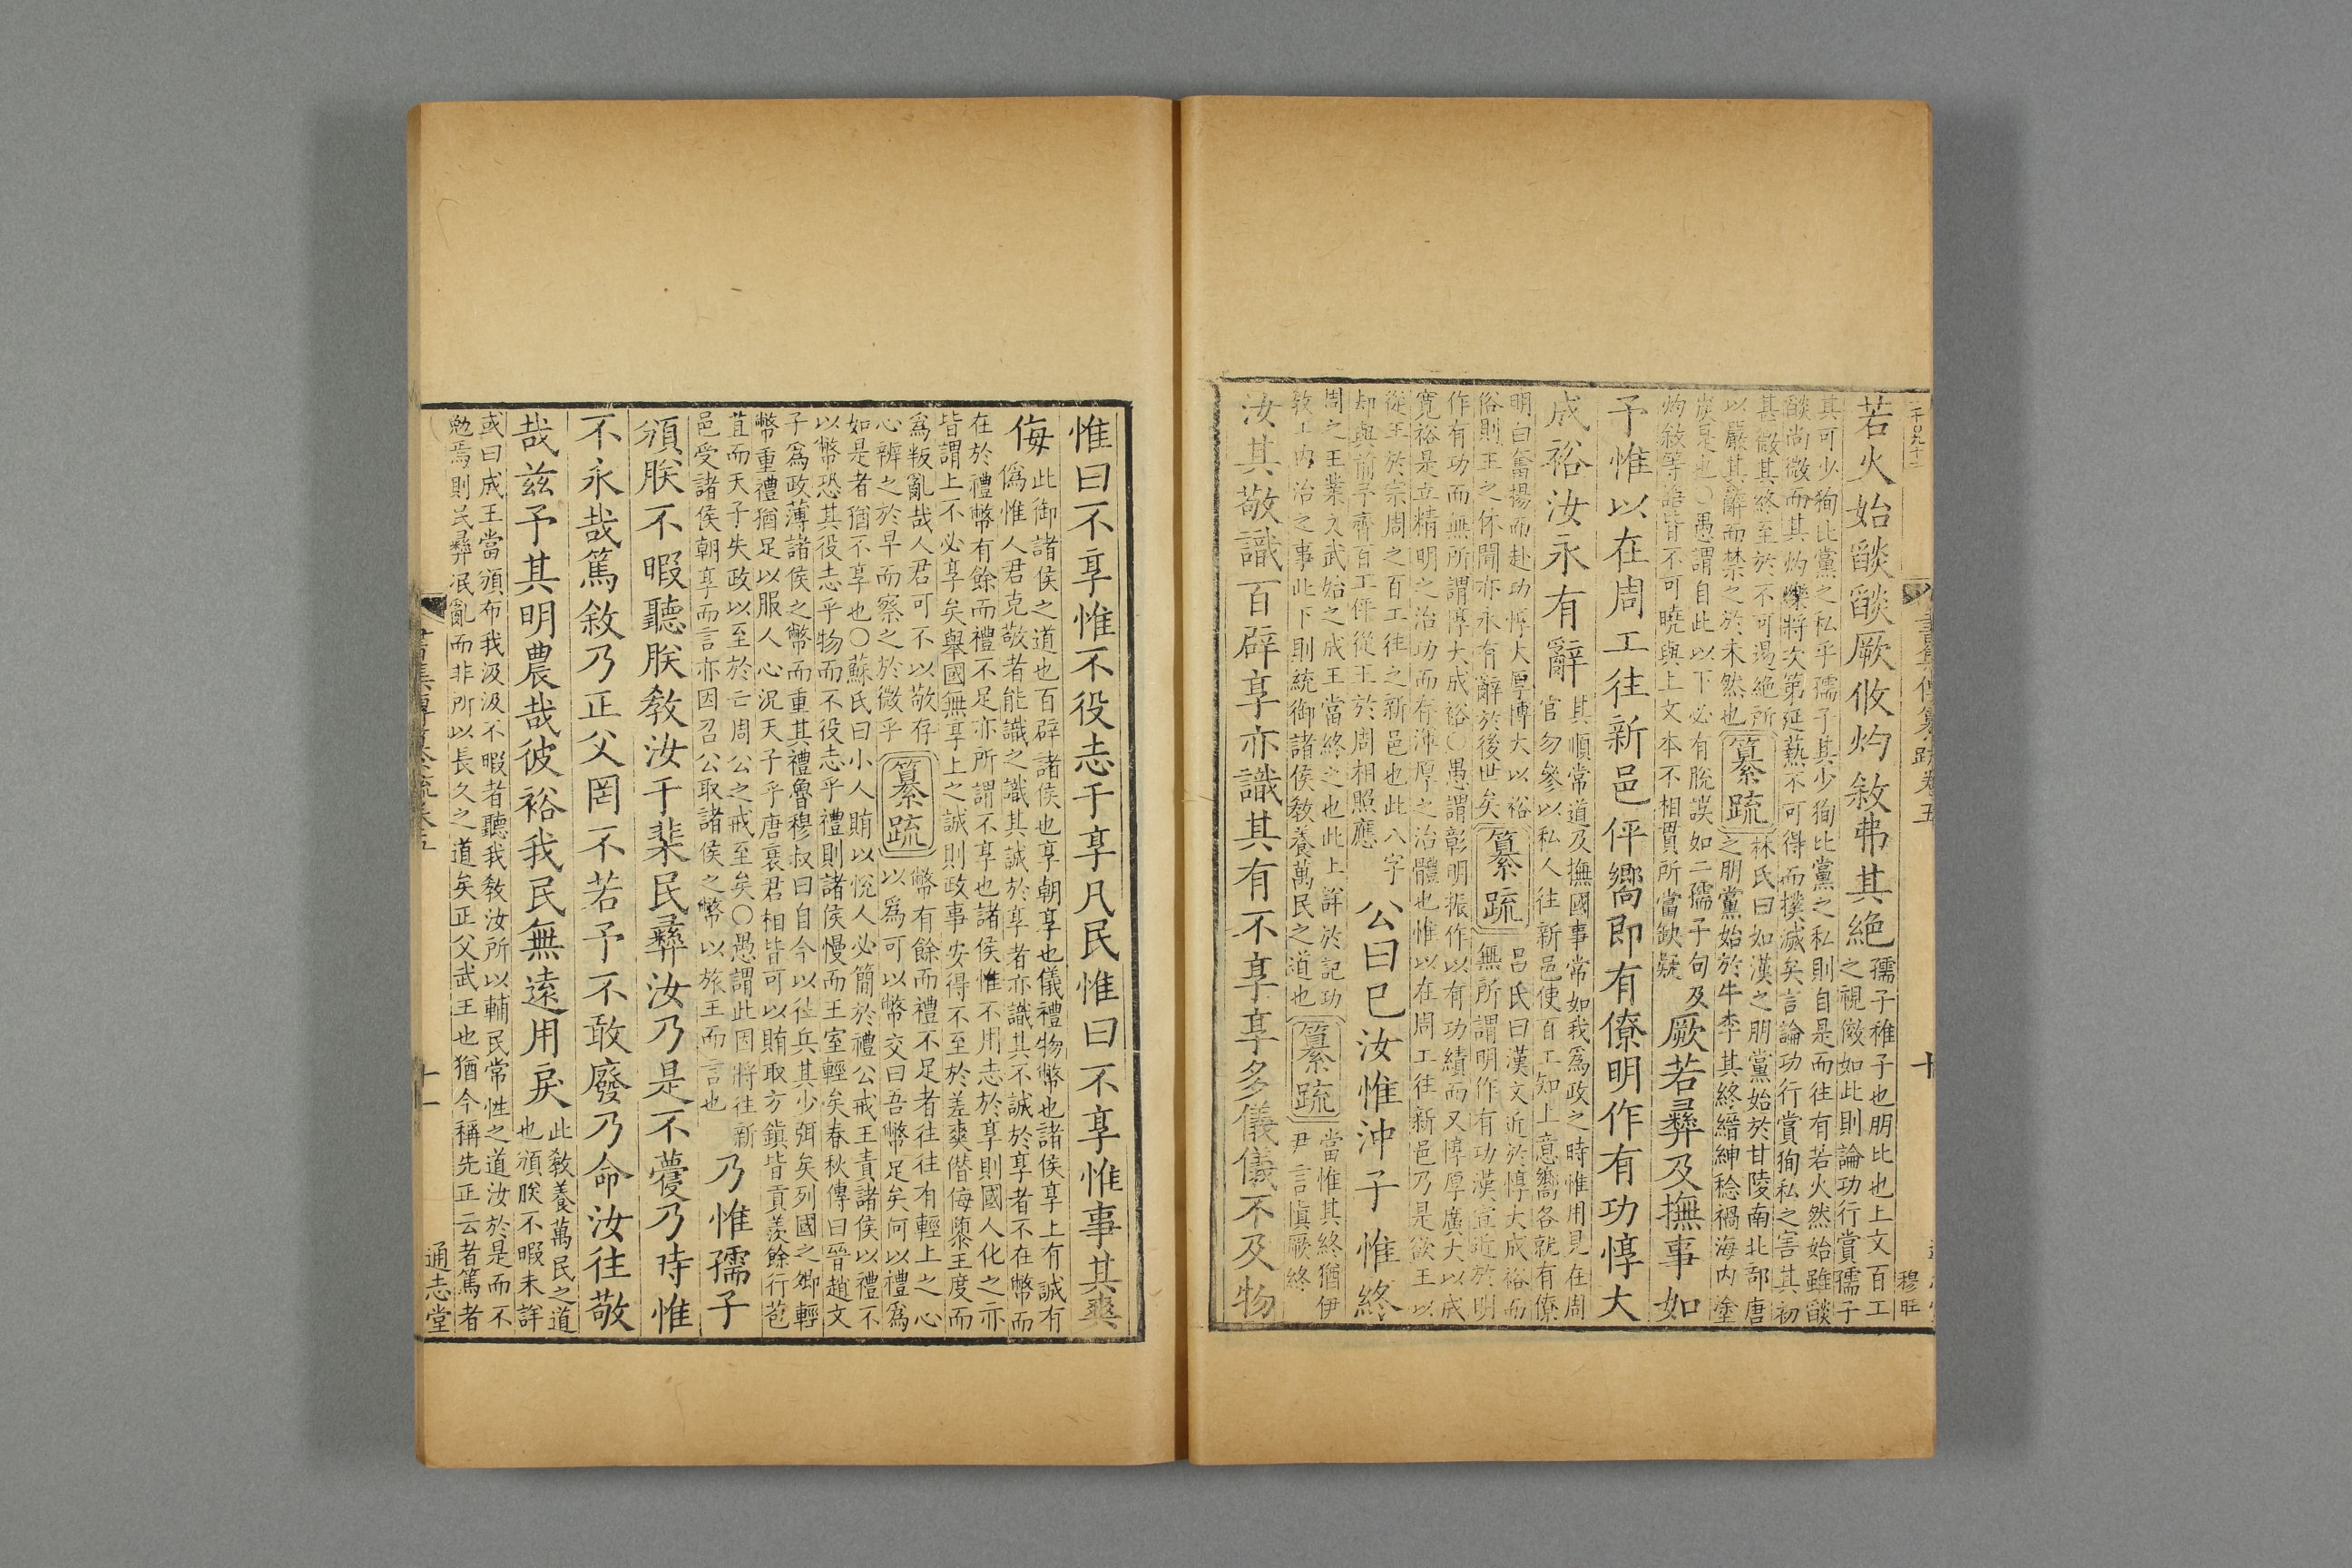 穆旺
書集傳纂疏卷五
十
若火始燄燄厥攸灼敘弗其絕
孺子稚子也朋比也上文百工
之視傚如此則論功行賞孺子
其可少狥比黨之私乎孺子其少狥比黨之私則自是而往有若火然始雖燄
燄尚微而其灼爍將次第延爇不可得而撲滅矣言論功行賞狥私之害其初
甚微其終至於不可遏絕所
以嚴其辭而禁之於未然也
纂疏
林氏曰如漢之朋黨始於甘陵南北部唐
之朋黨始於牛李其終縉紳稔禍海内塗
炭是也〇愚謂自此以下必有脫誤如二孺子句及
灼敘等語皆不可曉與上文本不相貫所當缺疑
厥若彝及撫事如
予惟以在周工往新邑伻嚮即有僚明作有功惇大
成裕汝永有辭
其順常道及撫國事常如我爲政之時惟用見在周
官勿參以私人往新邑使百工知上意嚮各就有僚
明白奮揚而赴功惇大厚博大以裕
俗則王之休聞亦永有辭於後世矣
纂疏
呂氏曰漢文近於惇大成裕而
無所謂明作有功漢宣近於明
作有功而無所謂惇大成裕〇愚謂彰明振作以有功績而又惇厚廣大以成
寬裕是立精明之治功而存渾厚之治體也惟以在周工往新邑乃是欲王以
從王於宗周之百工往之新邑也此八字
却與前予齊百工伻從王於周相照應
公曰已汝惟沖子惟終
周之王業文武始之成王當終之也此上詳於記功
教工内治之事此下則統御諸侯教養萬民之道也
纂疏
當惟其終猶伊
尹言慎厥終
汝其敬識百辟享亦識其有不享享多儀儀不及物
惟曰不享惟不役志于享凡民惟曰不享惟事其爽
侮
此御諸侯之道也百辟諸侯也享朝享也儀禮物幣也諸侯享上有誠有
僞惟人君克敬者能識之識其誠於享者亦識其不誠於享者不在幣而
在於禮幣有餘而禮不足亦所謂不享也諸侯惟不用志於享則國人化之亦
皆謂上不必享矣舉國無享上之誠則政事安得不至於差爽僭侮隳王度而
爲叛亂哉人君可不以敬存
心辨之於早而察之於微乎
纂疏
幣有餘而禮不足者往往有輕上之心
以爲可以幣交曰吾幣足矣何以禮爲
如是者猶不享也〇蘇氏曰小人賄以悅人必簡於禮公戒王責諸侯以禮不
以幣恐其役志乎物而不役志乎禮則諸侯慢而王室輕矣春秋傳曰晉趙文
子爲政薄諸侯之幣而重其禮魯穆叔曰自今以往兵其少弭矣列國之卿輕
幣重禮猶足以服人心況天子乎唐衰君相皆可以賄取方鎮皆貢羨餘行苞
苴而天子失政以至於亡周公之戒至矣〇愚謂此因將往新
邑受諸侯朝享而言亦因召公取諸侯之幣以旅王而言也
乃惟孺子
頒朕不暇聽朕教汝于棐民彝汝乃是不蘉乃時惟
不永哉篤敘乃正父罔不若予不敢廢乃命汝往敬
哉茲予其明農哉彼裕我民無遠用戾
此教養萬民之道
也頒朕不暇未詳
或曰成王當頒布我汲汲不暇者聽我教汝所以輔民常性之道汝於是而不
勉焉則民彝泯亂而非所以長久之道矣正父武王也猶今稱先正云者篤者
書集傳纂疏卷五
十一
通志堂